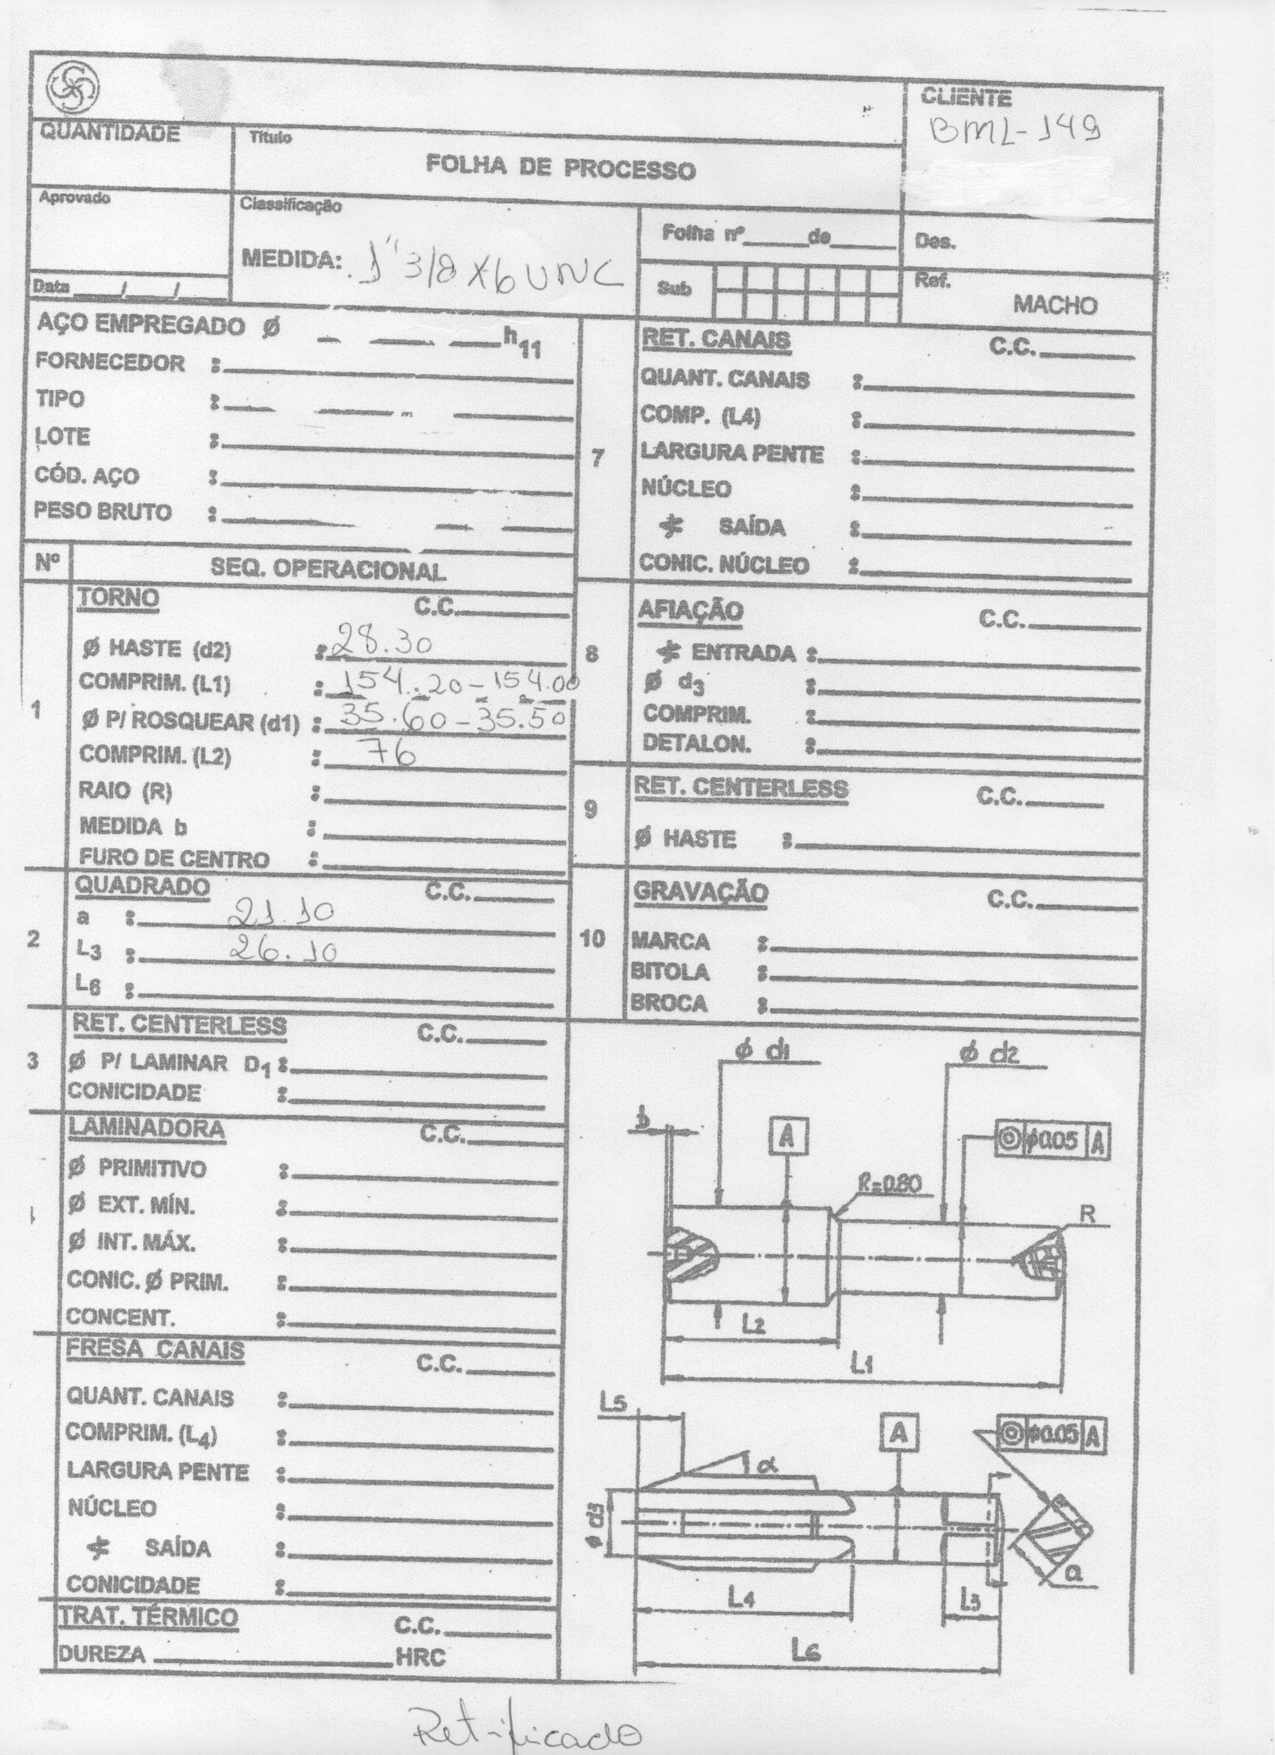 CLIENTE
BML-149
QUANTIDADE
Título
FOLHA DE PROCESSO
Aprovado
Classificação
MEDIDA: 1" 3/8 X 6 UNC
Folha nº_____de_____
Des.
Data ___/___/___
Sub
Ref.
MACHO
AÇO EMPREGADO Ø h11
FORNECEDOR :
TIPO :
LOTE :
CÓD. AÇO :
PESO BRUTO :
Nº SEQ. OPERACIONAL
1
TORNO C.C.
Ø HASTE (d2) : 28.30
COMPRIM. (L1) : 154.20-154.00
Ø P/ ROSQUEAR (d1) : 35.60-35.50
COMPRIM. (L2) : 76
RAIO (R) :
MEDIDA b :
FURO DE CENTRO :
2
QUADRADO C.C.
a : 21.10
L3 : 26.10
L6 :
3
RET. CENTERLESS C.C.
Ø P/ LAMINAR D1 :
CONICIDADE :
LAMINADORA C.C.
Ø PRIMITIVO :
Ø EXT. MÍN. :
Ø INT. MÁX. :
CONIC. Ø PRIM. :
CONCENT. :
FRESA CANAIS C.C.
QUANT. CANAIS :
COMPRIM. (L4) :
LARGURA PENTE :
NÚCLEO :
SAÍDA :
CONICIDADE :
TRAT. TÉRMICO C.C.
DUREZA HRC
7
RET. CANAIS C.C.
QUANT. CANAIS :
COMP. (L4) :
LARGURA PENTE :
NÚCLEO :
SAÍDA :
CONIC. NÚCLEO :
8
AFIAÇÃO C.C.
ENTRADA :
Ø d3 :
COMPRIM. :
DETALON. :
9
RET. CENTERLESS C.C.
Ø HASTE :
10
GRAVAÇÃO C.C.
MARCA :
BITOLA :
BROCA :
Ø d1
Ø d2
b
A
◎ Ø0.05 A
R=0.80
R
L2
L1
L5
A
◎ Ø0.05 A
α
Ø d3
a
L4
L3
L6
Retificado